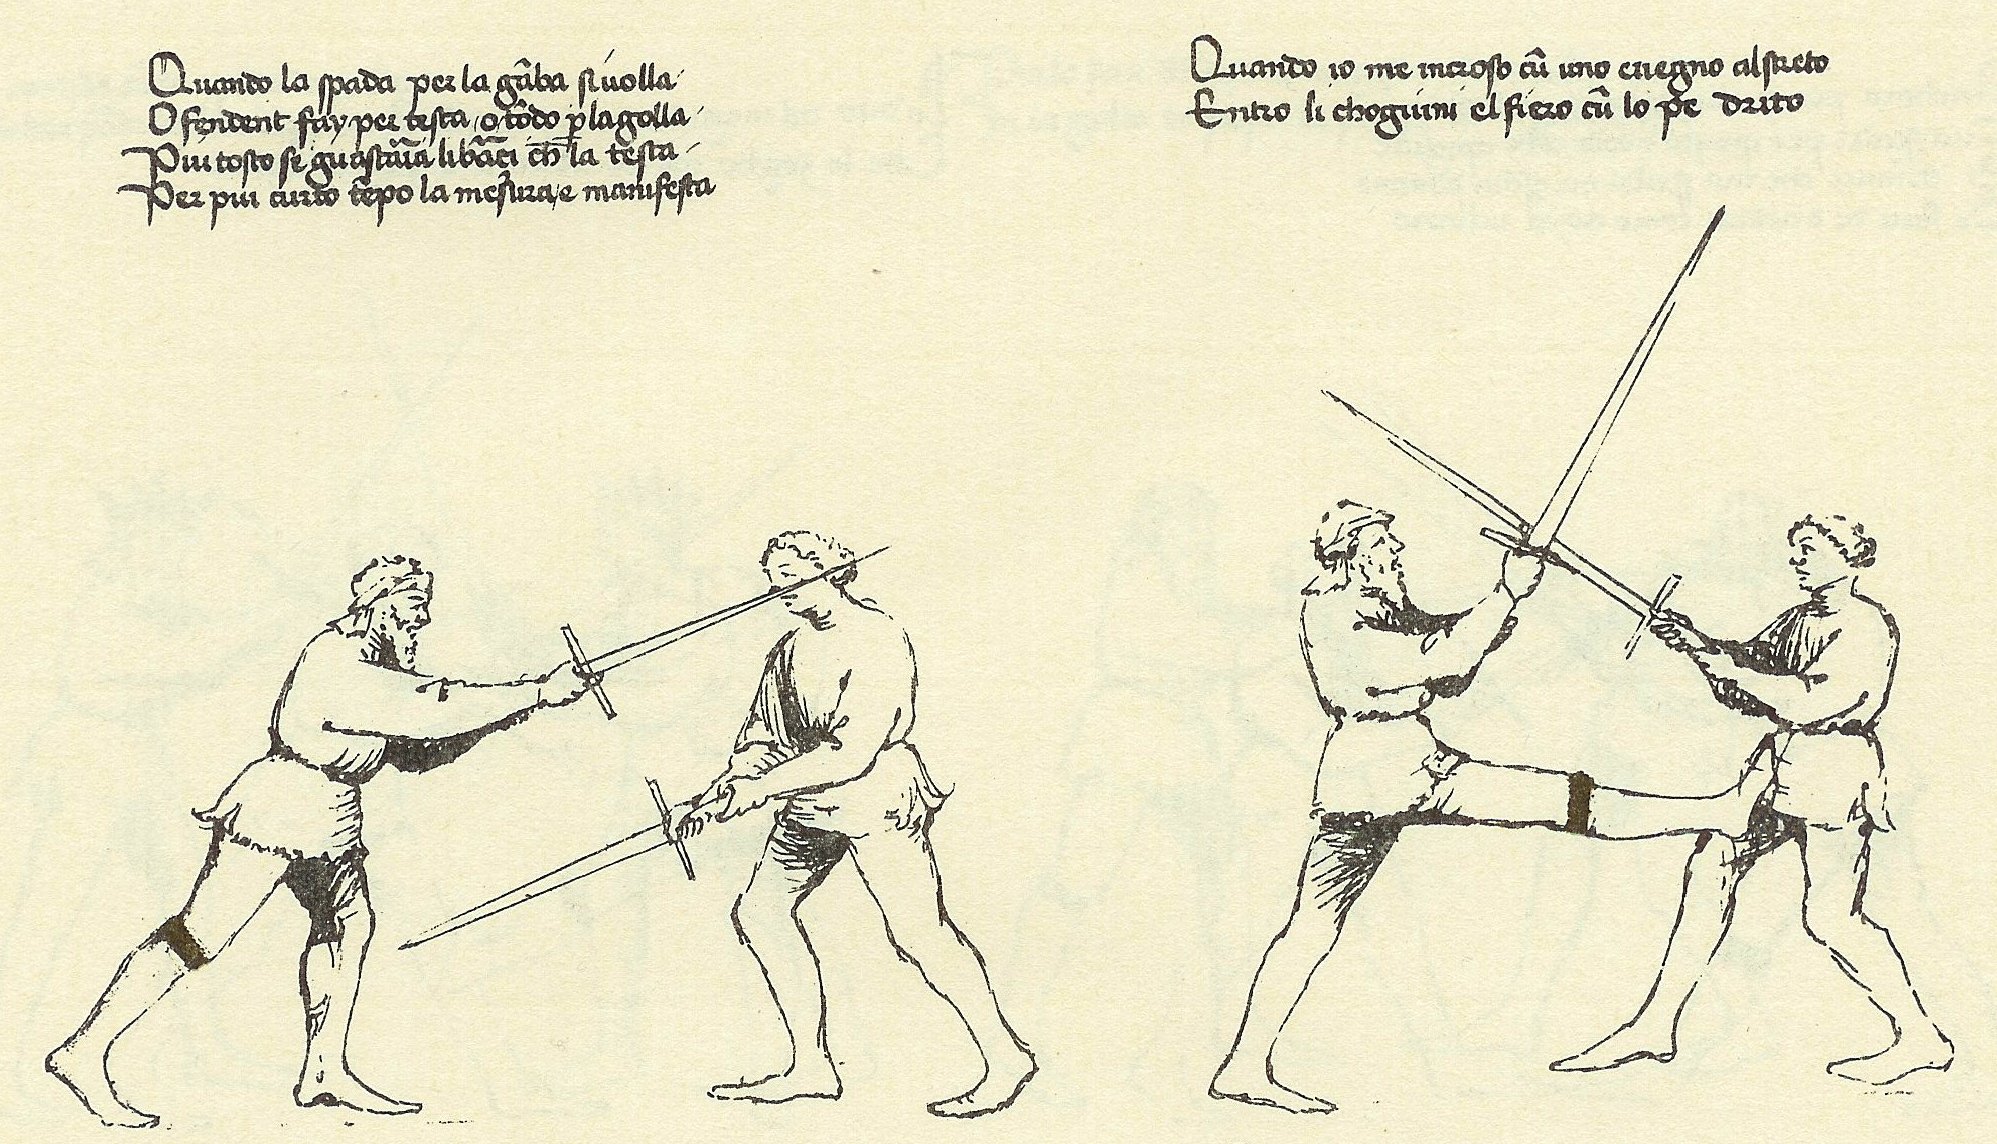 Quando la spada per la gāba si volla
O fendent fay per testa o tōdo p̱ la golla
Piu tosto se guastaria li bāci ch̄ la testa
Per piu curto tēpo la mesura e manifesta
Quando io me incroso cū uno e uegno al streto
Entro li choguini el fiero cū lo pe drito